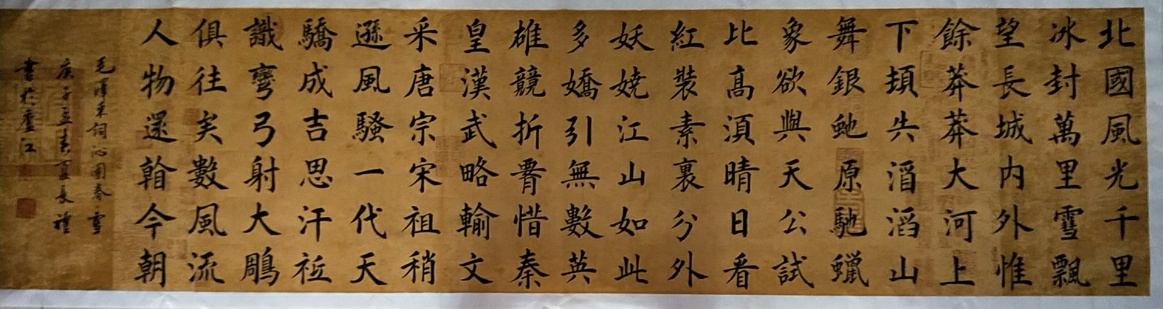 北國風光千里
冰封萬里雪飄
望長城内外惟
餘莽莽大河上
下頓失滔滔山
舞銀虵原馳蠟
象欲與天公試
比高須晴日看
紅裝素裹分外
妖娆江山如此
多嬌引無數英
雄競折腰惜秦
皇漢武略輸文
采唐宗宋祖稍
遜風騷一代天
驕成吉思汗祗
識彎弓射大鵰
俱往矣數風流
人物還看今朝
毛澤東詞沁園春雪
庚子立春
書於江